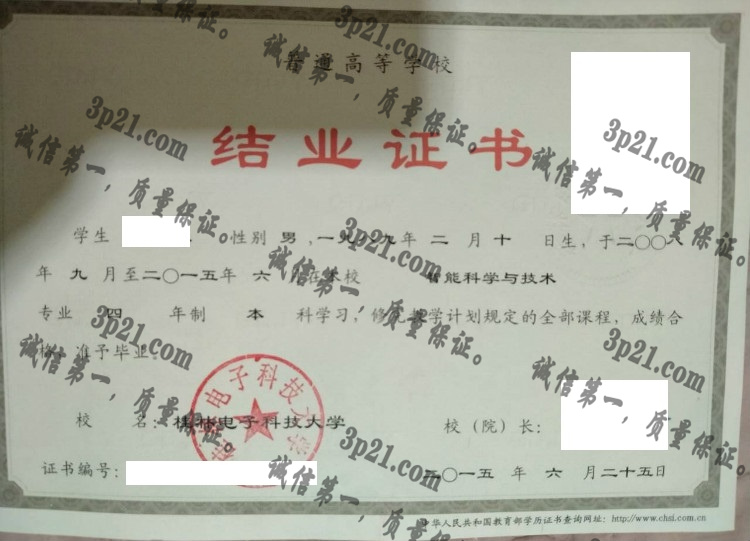 普通高等学校
结业证书
学生 性别 男，一九八九年 二 月 十 日生，于二〇〇八
年 九 月至二〇一五年 六 月在本校 智能科学与技术
专业 四 年制 本 科学习，修完教学计划规定的全部课程，成绩合
格，准予毕业。
校 名：桂林电子科技大学 校（院）长：
证书编号： 二〇一五 年 六 月二十五日
中华人民共和国教育部学历证书查询网址：http://www.chsi.com.cn
桂林电子科技大学
3p21.com
诚信第一，质量保证。
3p21.com
诚信第一，质量保证。
3p21.com
诚信第一，质量保证。
3p21.com
诚信第一，质量保证。
3p21.com
诚信第一，质量保证。
3p21.com
诚信第一，质量保证。
3p21.com
诚信第一，质量保证。